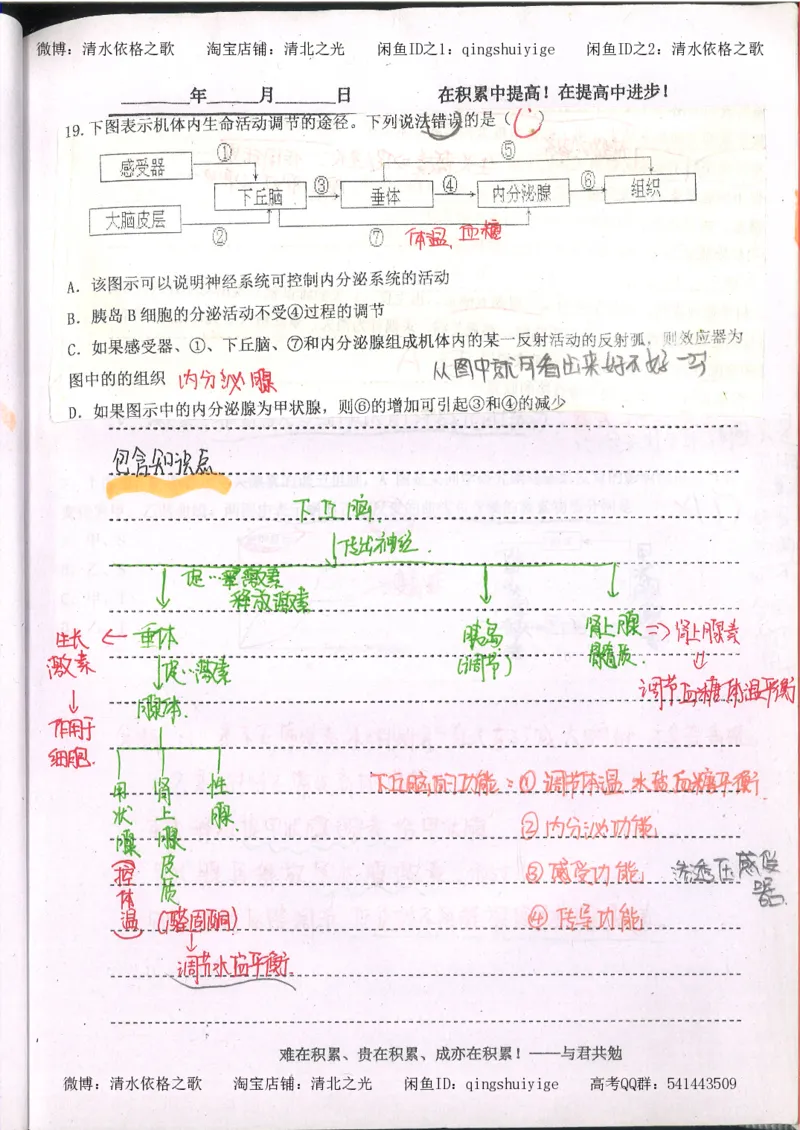 微博：清水依格之歌 淘宝店铺：清北之光 闲鱼ID之1：qingshuiyige 闲鱼ID之2：清水依格之歌
________年______月_______日 在积累中提高！在提高中进步！
19.下图表示机体内生命活动调节的途径。下列说法错误的是（ C ）
感受器 ① ⑤
下丘脑 ③ 垂体 ④ 内分泌腺 ⑥ 组织
大脑皮层 ② ⑦ 体温、血糖
A．该图示可以说明神经系统可控制内分泌系统的活动
B．胰岛 B 细胞的分泌活动不受④过程的调节
C．如果感受器、①、下丘脑、⑦和内分泌腺组成机体内的某一反射活动的反射弧，则效应器为
图中的的组织 内分泌腺 从图中就可看出来好不好
D．如果图示中的内分泌腺为甲状腺，则⑥的增加可引起③和④的减少
包含知识点
下丘脑
传出神经
促…释放激素
垂体
生长激素
作用于细胞
促…激素
腺体
胰岛
(调节)
肾上腺髓质
⇒肾上腺素
调节血糖体温平衡
甲状腺
(控体温)
肾上腺皮质
(醛固酮)
调节水盐平衡
性腺
下丘脑的功能：①调节体温 水盐血糖平衡
②内分泌功能
③感受功能 渗透压感受器
④传导功能
难在积累、贵在积累、成亦在积累！——与君共勉
微博：清水依格之歌 淘宝店铺：清北之光 闲鱼ID：qingshuiyige 高考QQ群：541443509